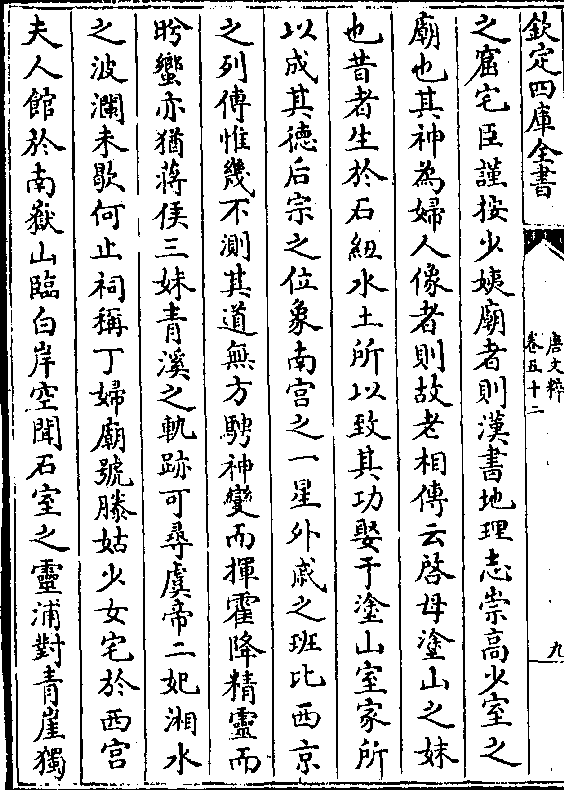 欽定四庫全書
唐文粹
卷五十二
九
之窟宅臣謹按少姨廟者則漢書地理志崇高少室之
廟也其神為婦人像者則故老相傳云啓母塗山之妹
也昔者生於石紐水土所以致其功娶于塗山室家所
以成其德后宗之位象南宫之一星外戚之班比西京
之列傅惟幾不測其道無方騁神變而揮霍降精靈而
肸蠁亦猶蔣侯三妹青溪之軌跡可尋虞帝二妃湘水
之波瀾未歇何止祠稱丁婦廟號滕姑少女宅於西宫
夫人館於南嶽山臨白岸空聞石室之靈浦對青崖獨